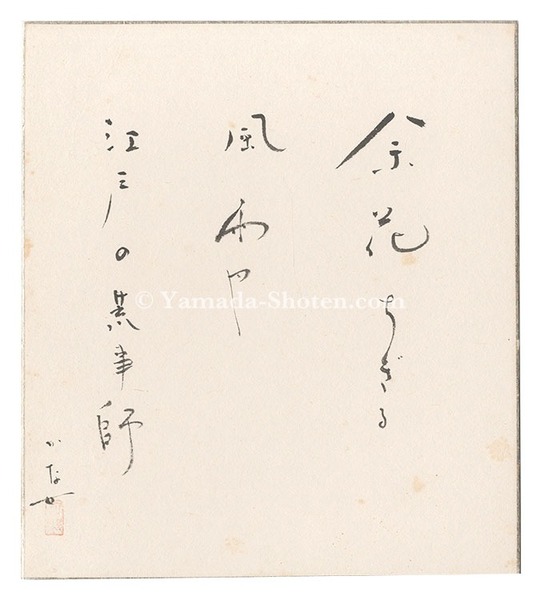 余花ちぎる
風雨や
江戸の荒事師
かな女
© Yamada-Shoten.com